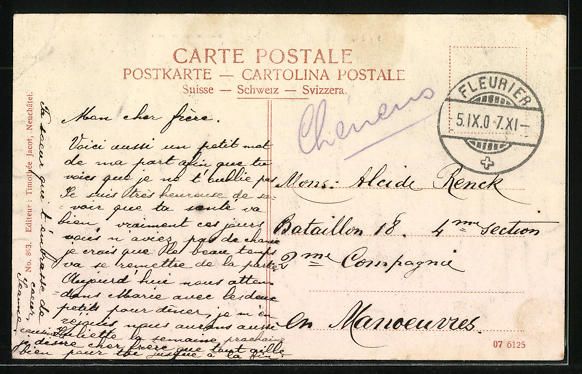 CARTE POSTALE
POSTKARTE — CARTOLINA POSTALE
Suisse — Schweiz — Svizzera.
FLEURIER
5.IX.0 7.XI
Mon cher frère.
Voici aussi un petit mot
de ma part afin que tu
voies que je ne t'oublie pas
Je suis très heureuse de sa-
voir que ta santé va
bien, vraiment ces jours
vous n'avez pas de chance
je crois que plus beau temps
va se remettre de la partie
Aujourd'hui nous atten-
dons Marie avec les deux
petits pour dîner, je m'en
réjouis nous aurons aussi
cousine Juliette la semaine prochaine
je désire cher frère que tout aille
bien pour toi jusqu'à la fin
Ta soeur qui t'embrasse de
coeur
Mons. Alcide Renck
Bataillon 18. 4me Section
2me Compagnie
en Manoeuvres.
No. 843. Editeur: Timothée Jacot, Neuchâtel.
07 6125